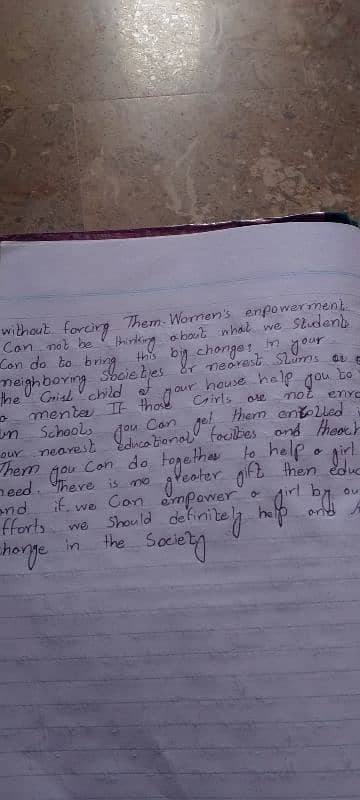 without forcing Them. Women's enpowerment
Can not be thinking about what we student
Can do to bring this big change? in your
neighboring Societies or nearest Slums or
the Girl child of your house help you to
mentor If those Girls are not enro
in Schools you Can get them enrolled
our nearest educational facilties and
Them you Can do together to help a girl
need. There is no greater gift then educ
and if we Can empower a girl by ou
fforts we should definitely help and
hange in the Society